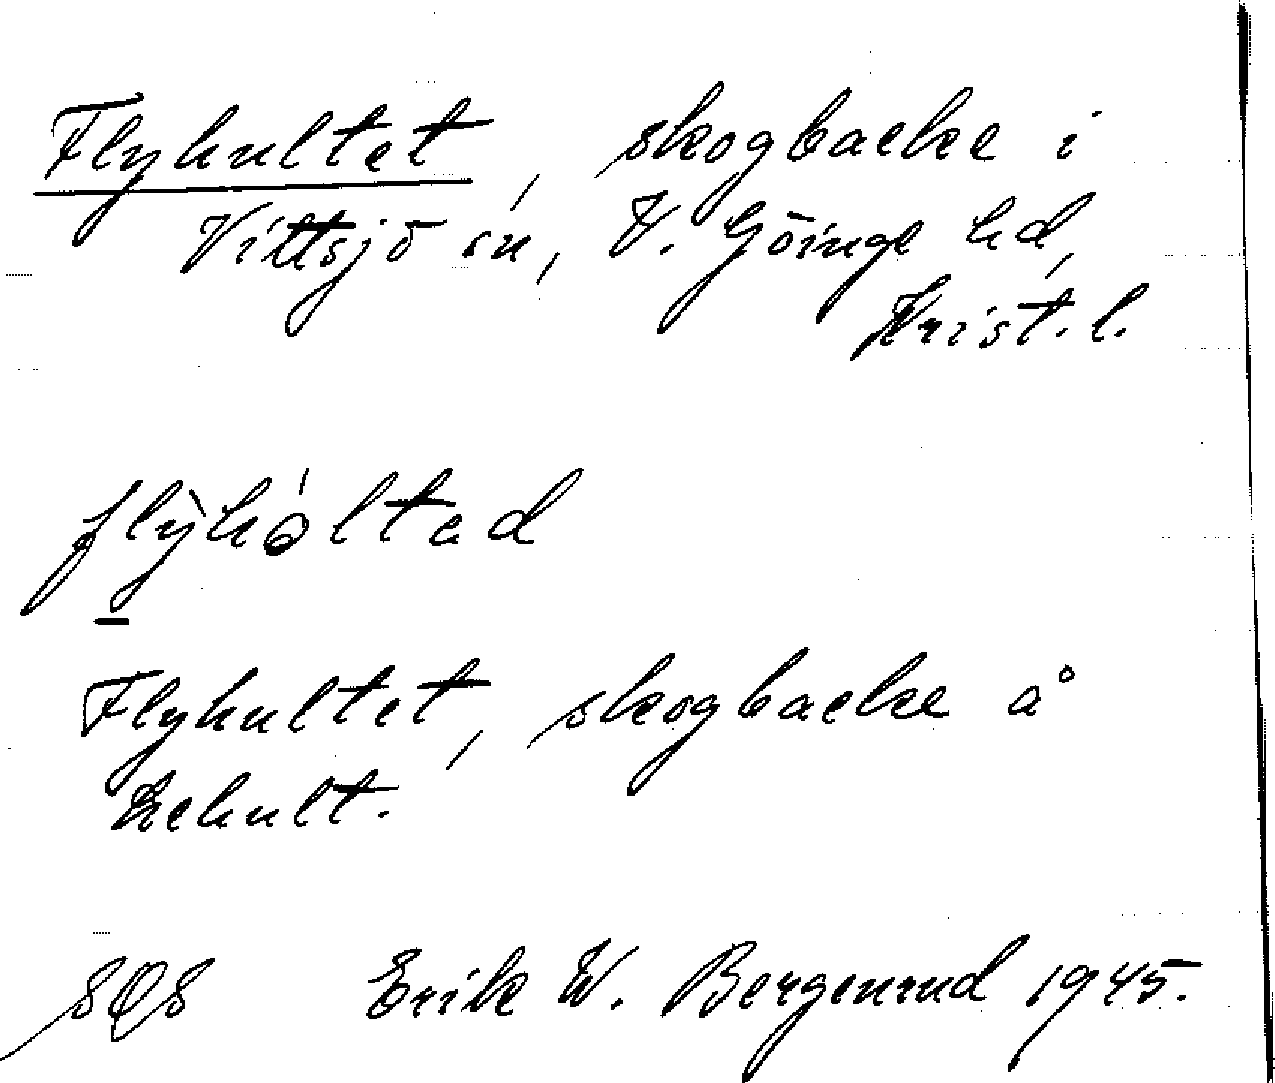 Flyhultet, skogbacke i
Vittsjö sn, V. Göinge hd,
Krist. l.
Flyhultet, skogbacke å
Ehult.
Erik W. Bergenrud 1945.